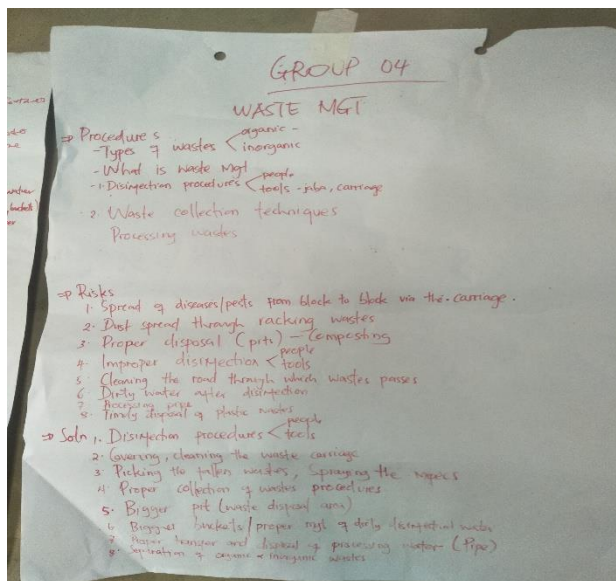 GROUP 04
WASTE MGT
⇒ Procedures
- Types of wastes < organic -
inorganic
- What is waste Mgt
- 1. Disinfection procedures < people
tools - jaba, carriage
2. Waste collection techniques
Processing wastes
⇒ Risks
1. Spread of diseases/pests from block to block via the carriage.
2. Dust spread through racking wastes
3. Proper disposal (pits) - Composting
4. Improper disinfection < people
tools
5. Cleaning the road through which wastes passes
6. Dirty water after disinfection
7. Processing
8. Timely disposal of plastic wastes
⇒ Soln 1. Disinfection procedures < people
tools
2. Covering, cleaning the waste carriage
3. Picking the fallen wastes, Spraying the
4. Proper collection of wastes procedures
5. Bigger pit (waste disposal area)
6. Bigger buckets/proper mgt of dirty disinfection water
7. Proper transfer and disposal of processing water (Pipe)
8. Separation of organic & inorganic wastes